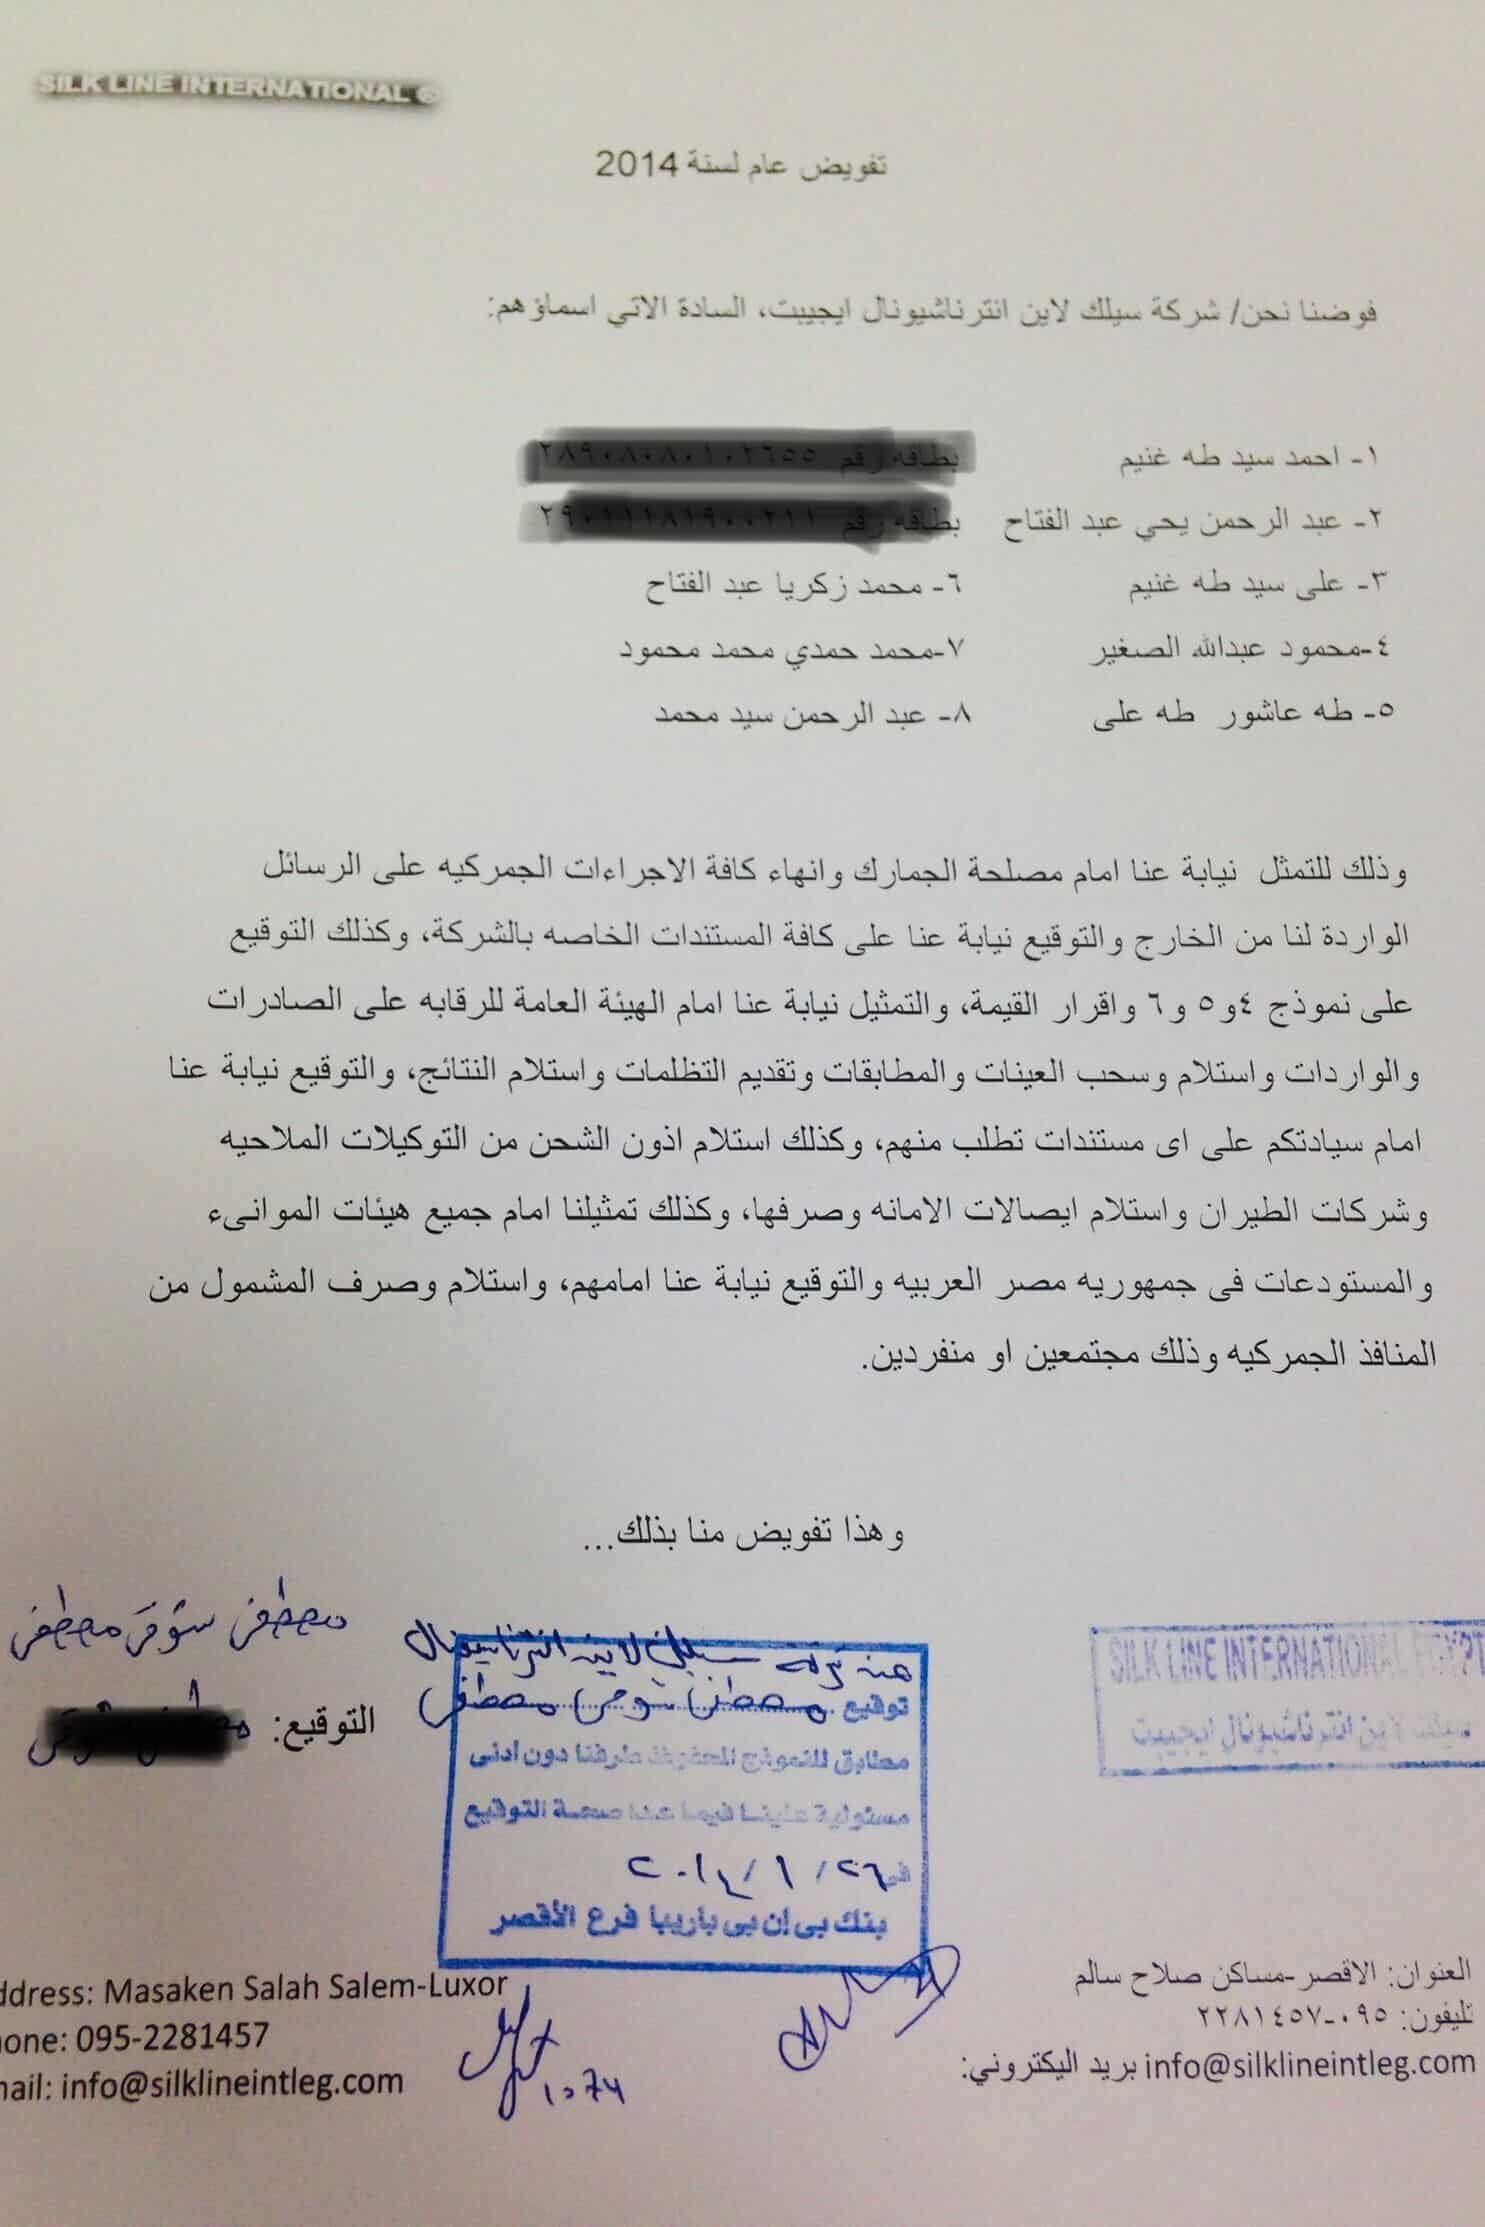 SILK LINE INTERNATIONAL ©
تفويض عام لسنة 2014
فوضنا نحن/ شركة سيلك لاين انترناشيونال ايجيبت، السادة الاتي اسماؤهم:
١- احمد سيد طه غنيم بطاقه رقم
٢- عبد الرحمن يحي عبد الفتاح بطاقه رقم
٣- على سيد طه غنيم ٦- محمد زكريا عبد الفتاح
٤-محمود عبدالله الصغير ٧-محمد حمدي محمد محمود
٥- طه عاشور طه على ٨- عبد الرحمن سيد محمد
وذلك للتمثل نيابة عنا امام مصلحة الجمارك وانهاء كافة الاجراءات الجمركيه على الرسائل
الواردة لنا من الخارج والتوقيع نيابة عنا على كافة المستندات الخاصه بالشركة، وكذلك التوقيع
على نموذج ٤و٥ و٦ واقرار القيمة، والتمثيل نيابة عنا امام الهيئة العامة للرقابه على الصادرات
والواردات واستلام وسحب العينات والمطابقات وتقديم التظلمات واستلام النتائج، والتوقيع نيابة عنا
امام سيادتكم على اى مستندات تطلب منهم، وكذلك استلام اذون الشحن من التوكيلات الملاحيه
وشركات الطيران واستلام ايصالات الامانه وصرفها، وكذلك تمثيلنا امام جميع هيئات الموانىء
والمستودعات فى جمهوريه مصر العربيه والتوقيع نيابة عنا امامهم، واستلام وصرف المشمول من
المنافذ الجمركيه وذلك مجتمعين او منفردين.
وهذا تفويض منا بذلك...
SILK LINE INTERNATIONAL EGYPT
سيلك لاين انترناشيونال ايجيبت
عن شركة سيلك لاين انترناشيونال
توقيع مصطفى شوقى مصطفى
مطابق للنموذج المحفوظ طرفنا دون ادنى
مسئولية علينا فيما عدا صحة التوقيع
فى ٢٦/ ١/ ٢٠١٤
بنك بى إن بى باريبا فرع الأقصر
مصطفى شوقى مصطفى
التوقيع:
العنوان: الاقصر-مساكن صلاح سالم
تليفون: ٠٩٥-٢٢٨١٤٥٧
info@silklineintleg.com بريد اليكتروني:
ddress: Masaken Salah Salem-Luxor
hone: 095-2281457
mail: info@silklineintleg.com